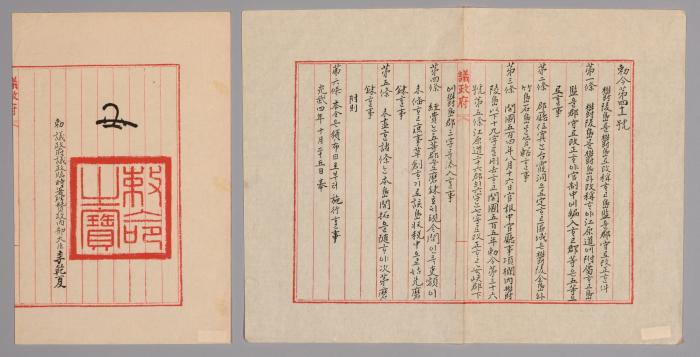 勅令第四十一號
鬱陵島를鬱島로改稱ᄒᆞ고島監을郡守로改正ᄒᆞᆫ件
第一條 鬱陵島를鬱島라改稱ᄒᆞ야江原道에附屬ᄒᆞ고島
監을郡守로改正ᄒᆞ야官制中에編入ᄒᆞ고郡等은五等으
로ᄒᆞᆯ事
第二條 郡廳位寘ᄂᆞᆫ台霞洞으로定ᄒᆞ고區域은鬱陵全島와
竹島石島를管轄ᄒᆞᆯ事
第三條 開國五百四年八月十六日官報中官廳事項欄內鬱
陵島以下十九字를刪去ᄒᆞ고開國五百五年勅令第三十六
號第五條江原道二十六郡의六字ᄂᆞᆫ七字로改正ᄒᆞ고安峽郡下
에鬱島郡三字를添入ᄒᆞᆯ事
第四條 經費ᄂᆞᆫ五等郡으로磨鍊호ᄃᆡ現今間인즉吏額이
未備ᄒᆞ고庶事草創ᄒᆞ기로該島收稅中으로姑先磨
鍊ᄒᆞᆯ事
第五條 未盡ᄒᆞᆫ諸條ᄂᆞᆫ本島開拓을隨ᄒᆞ야次第磨
鍊ᄒᆞᆯ事
附則
第六條 本令은頒布日로부터施行ᄒᆞᆯ事
光武四年十月二十五日奉
議政府
勅命之寶
勅 議政府議政臨時署理贊政內部大臣 李乾夏
議政府